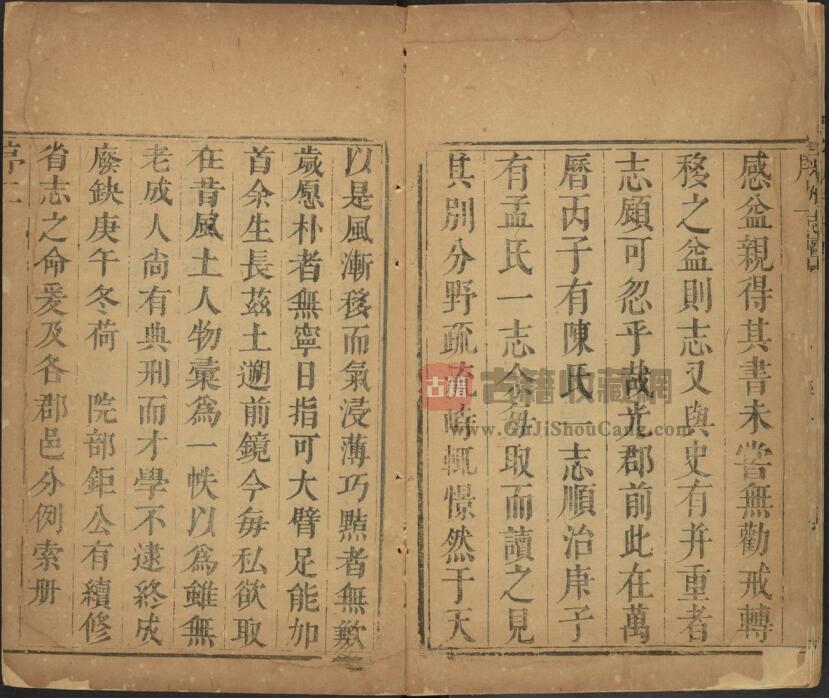 感益親得其書未嘗無勸戒轉
移之益則志又與史有并重者
志顧可忽乎哉光郡前此在萬
曆丙子有陳氏　志順治庚子
有孟氏一志余每取而讀之見
其別分野疏流峙輒憬然于天
以是風漸移而氣浸薄巧黠者無歉
歲愿朴者無寧日指可大臂足能加
首余生長茲土遡前鏡今每私欲取
在昔風土人物彙為一帙以為雖無
老成人尚有典刑而才學不逮終成
廢缺庚午冬荷　院部鉅公有續修
省志之命爰及各郡邑分例索册
古籍
古籍收藏網
www.GuJiShouCang.com